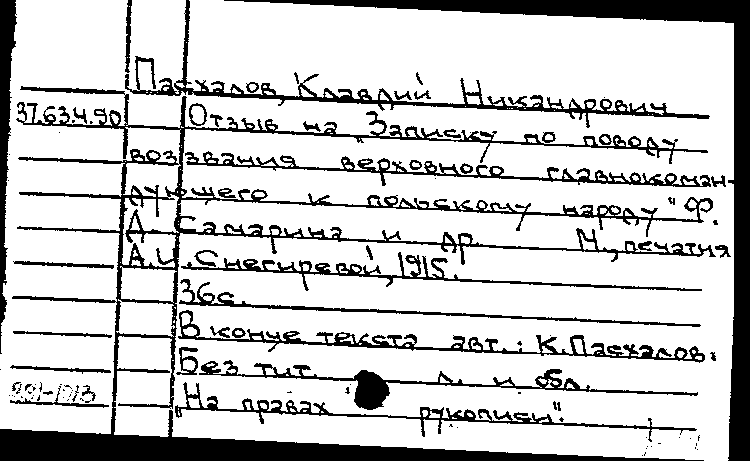 Пасхалов, Клавдий Никандрович
37.63.4.90 Отзыв на "Записку по поводу
воззвания верховного главнокоман-
дующего к польскому народу" Ф.
Д. Самарина и др. М., печатня
А.И. Снегиревой, 1915.
36с.
В конце текста авт.: К. Пасхалов.
Без тит. л. и обл.
"На правах рукописи".